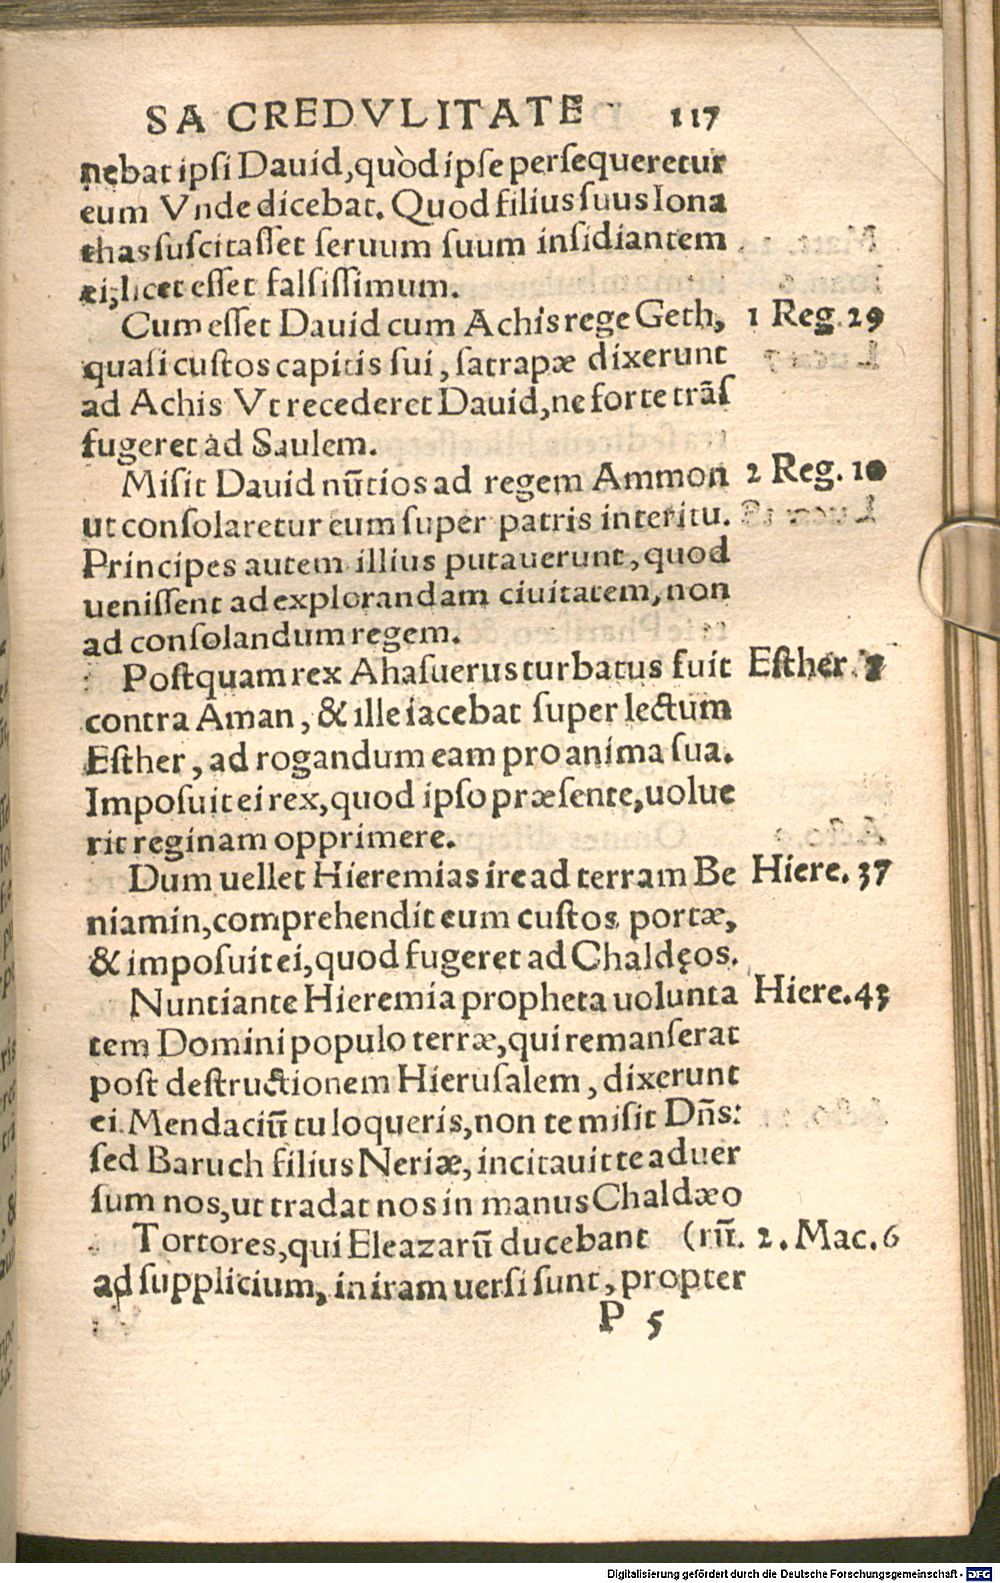 SA CREDVLITATE 117
nebat ipſi Dauid, quòd ipſe perſequeretur
eum Vnde dicebat. Quod filius ſuus Iona
thas ſuſcitaſſet ſeruum ſuum inſidiantem
ei, licet eſſet falſiſſimum.
Cum eſſet Dauid cum Achis rege Geth, 1 Reg. 29
quaſi cuſtos capitis ſui, ſatrapæ dixerunt
ad Achis Vt recederet Dauid, ne forte trãſ
fugeret ad Saulem.
Miſit Dauid nũtios ad regem Ammon 2 Reg. 10
ut conſolaretur eum ſuper patris interitu.
Principes autem illius putauerunt, quod
ueniſſent ad explorandam ciuitatem, non
ad conſolandum regem.
Poſtquam rex Ahaſuerus turbatus fuit Eſther. 7
contra Aman, & ille iacebat ſuper lectum
Eſther, ad rogandum eam pro anima ſua.
Impoſuit ei rex, quod ipſo præſente, uolue
rit reginam opprimere.
Dum uellet Hieremias ire ad terram Be Hiere. 37
niamin, comprehendit eum cuſtos portæ,
& impoſuit ei, quod fugeret ad Chaldęos.
Nuntiante Hieremia propheta uolunta Hiere. 43
tem Domini populo terræ, qui remanſerat
poſt deſtructionem Hieruſalem, dixerunt
ei. Mendaciũ tu loqueris, non te miſit Dñs:
ſed Baruch filius Neriæ, incitauit te aduer
ſum nos, ut tradat nos in manus Chaldæo
Tortores, qui Eleazarũ ducebant (rũ. 2. Mac. 6
ad ſupplicium, in iram uerſi ſunt, propter
P 5
Digitalisierung gefördert durch die Deutsche Forschungsgemeinschaft - DFG